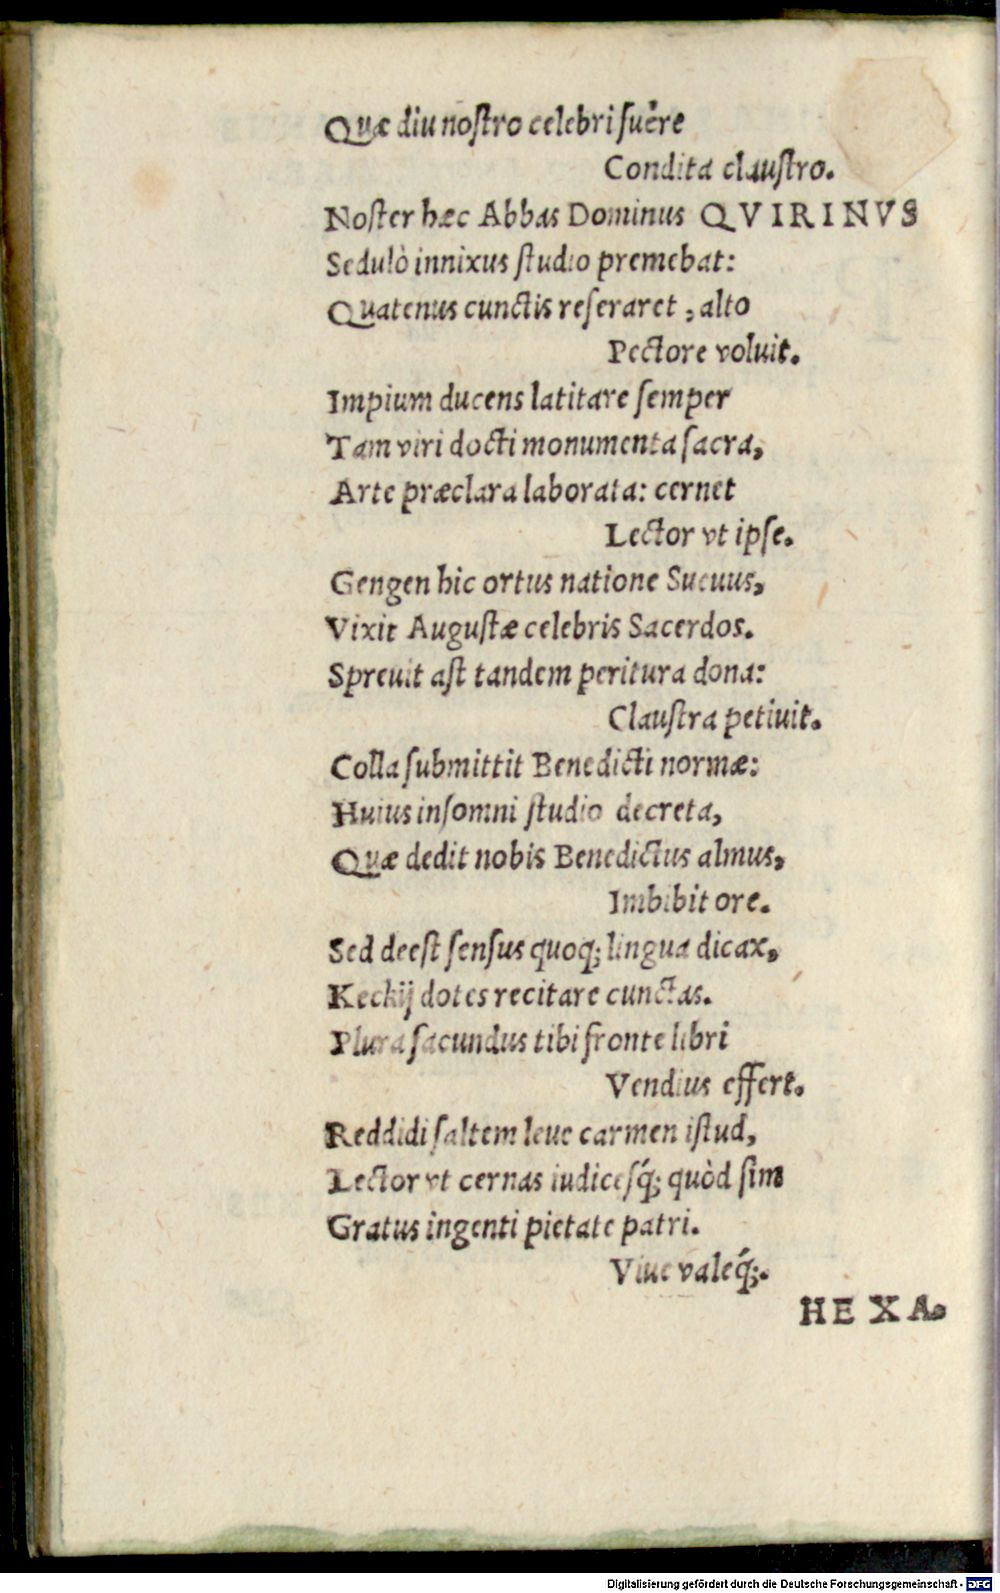 Quæ diu noſtro celebri fuêre
Condita clauſtro.
Noſter hæc Abbas Dominus QVIRINVS
Sedulò innixus ſtudio premebat:
Quatenus cunctis reſeraret, alto
Pectore voluit.
Impium ducens latitare ſemper
Tam viri docti monumenta ſacra,
Arte præclara laborata: cernet
Lector vt ipſe.
Gengen hic ortus natione Sueuus,
Vixit Auguſtæ celebris Sacerdos.
Spreuit aſt tandem peritura dona:
Clauſtra petiuit.
Colla ſubmittit Benedicti normæ:
Huius inſomni ſtudio decreta,
Quæ dedit nobis Benedictus almus,
Imbibit ore.
Sed deeſt ſenſus quoq; lingua dicax,
Keckij dotes recitare cunctas.
Plura facundus tibi fronte libri
Vendius effert.
Reddidi ſaltem leue carmen iſtud,
Lector vt cernas iudiceſq́; quòd ſim
Gratus ingenti pietate patri.
Viue valeq́;.
HEXA.
Digitalisierung gefördert durch die Deutsche Forschungsgemeinschaft - DFG